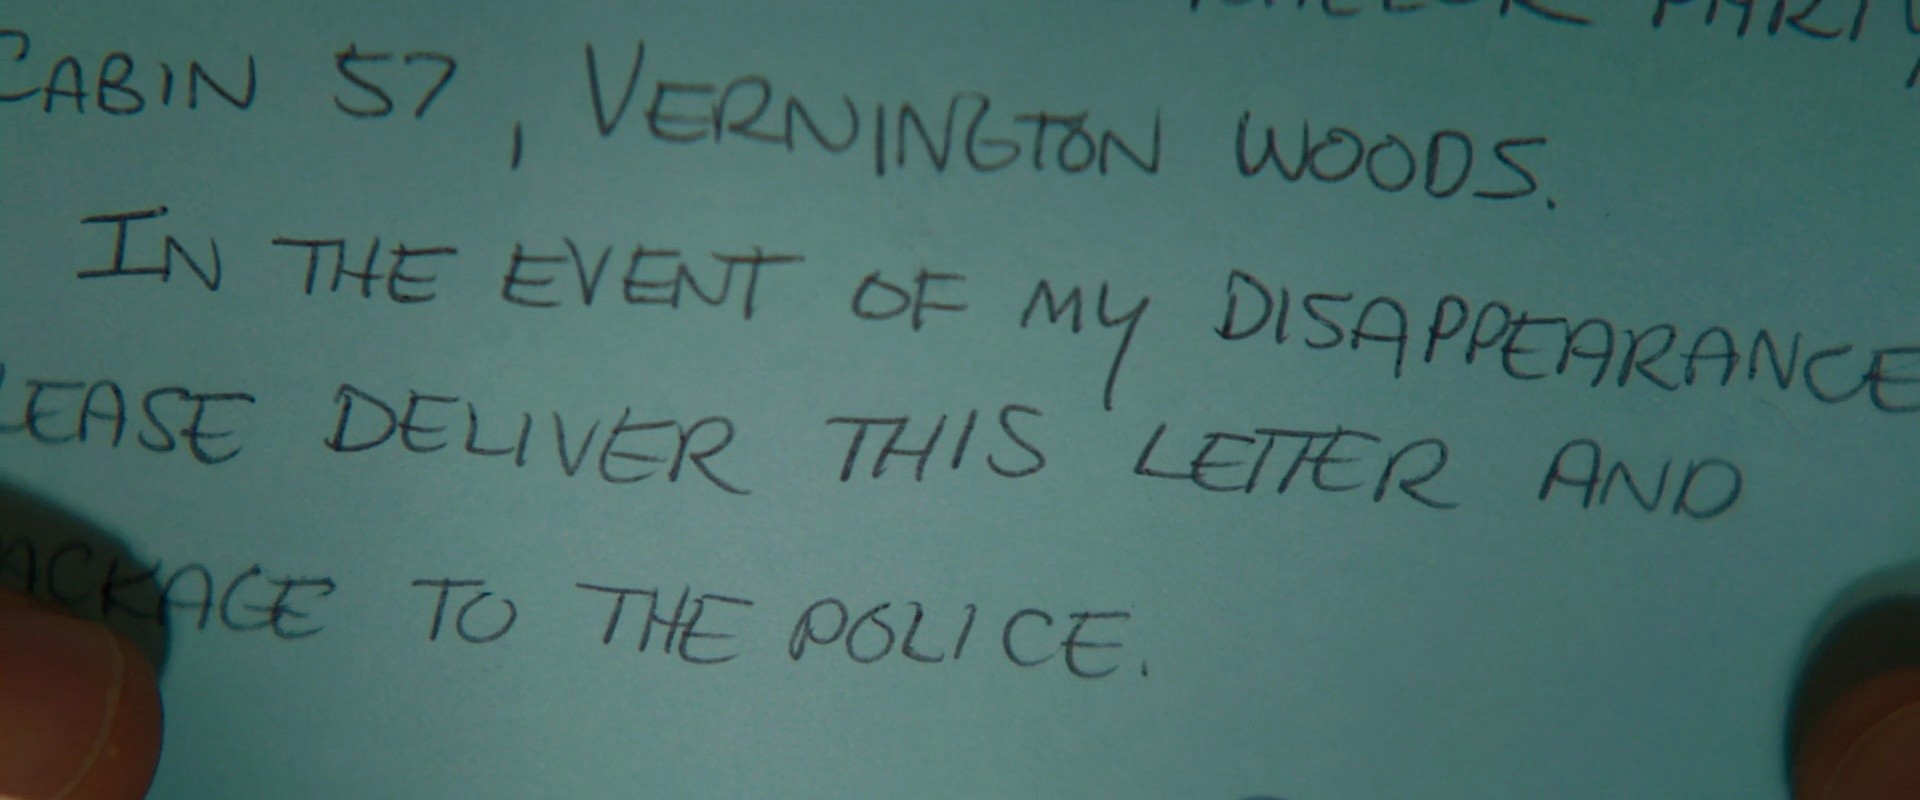 CABIN 57, VERNINGTON WOODS.
IN THE EVENT OF MY DISAPPEARANCE
LEASE DELIVER THIS LETTER AND
ACKAGE TO THE POLICE.